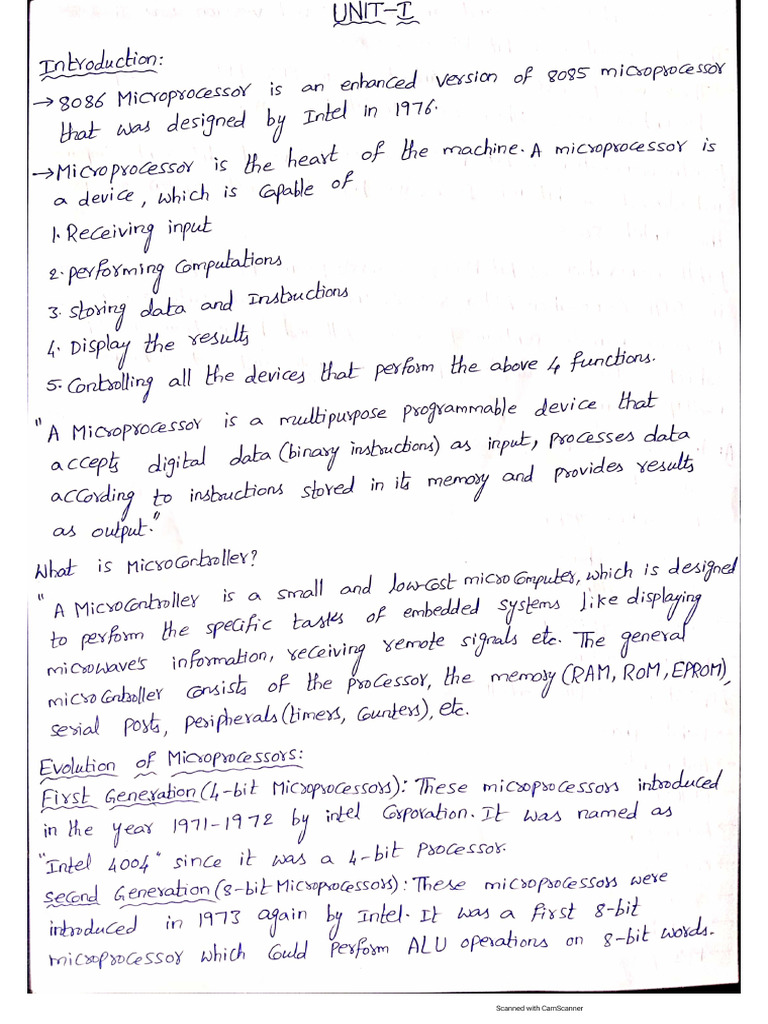 UNIT-I
Introduction:
→8086 Microprocessor is an enhanced version of 8085 microprocessor
that was designed by Intel in 1976.
→Microprocessor is the heart of the machine. A microprocessor is
a device, which is capable of
1. Receiving input
2. performing computations
3. storing data and Instructions
4. Display the results
5. Controlling all the devices that perform the above 4 functions.
"A Microprocessor is a multipurpose programmable device that
accepts digital data (binary instructions) as input, processes data
according to instructions stored in its memory and provides results
as output."
What is Microcontroller?
"A Microcontroller is a small and low-cost microcomputer, which is designed
to perform the specific tasks of embedded systems like displaying
microwave's information, receiving remote signals etc. The general
microcontroller consists of the processor, the memory (RAM, ROM, EPROM),
serial ports, peripherals (timers, counters), etc.
Evolution of Microprocessors:
First Generation (4-bit Microprocessors): These microprocessors introduced
in the year 1971-1972 by intel Corporation. It was named as
"Intel 4004" since it was a 4-bit processor.
second Generation (8-bit Microprocessors): These microprocessors were
introduced in 1973 again by Intel. It was a first 8-bit
microprocessor which could perform ALU operations on 8-bit words.
Scanned with CamScanner